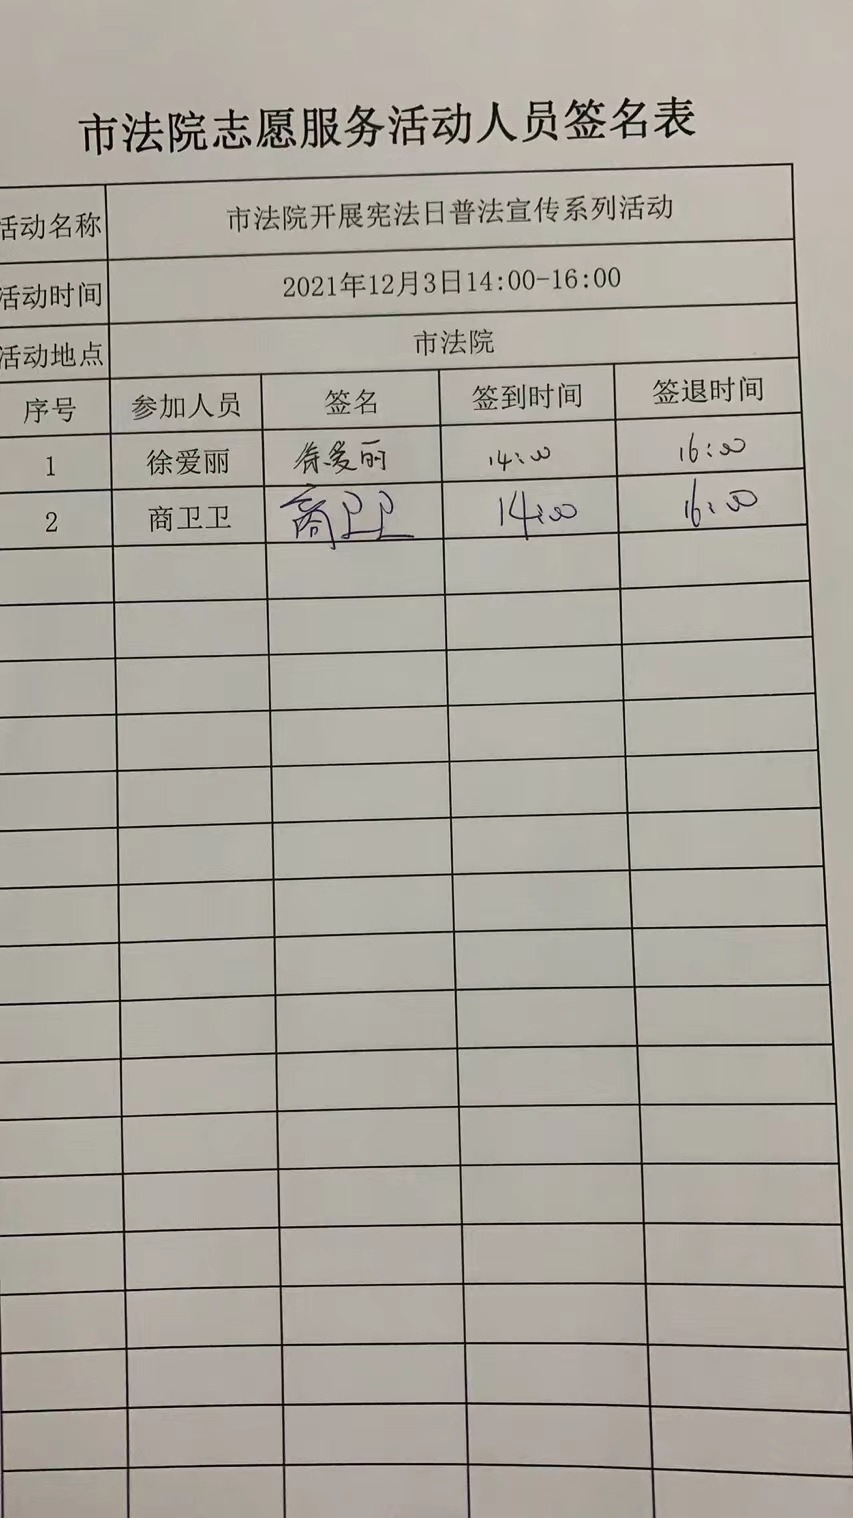 市法院志愿服务活动人员签名表
活动名称 市法院开展宪法日普法宣传系列活动
活动时间 2021年12月3日14:00-16:00
活动地点 市法院
序号 参加人员 签名 签到时间 签退时间
1 徐爱丽 徐爱丽 14:00 16:00
2 商卫卫 商卫卫 14:00 16:00